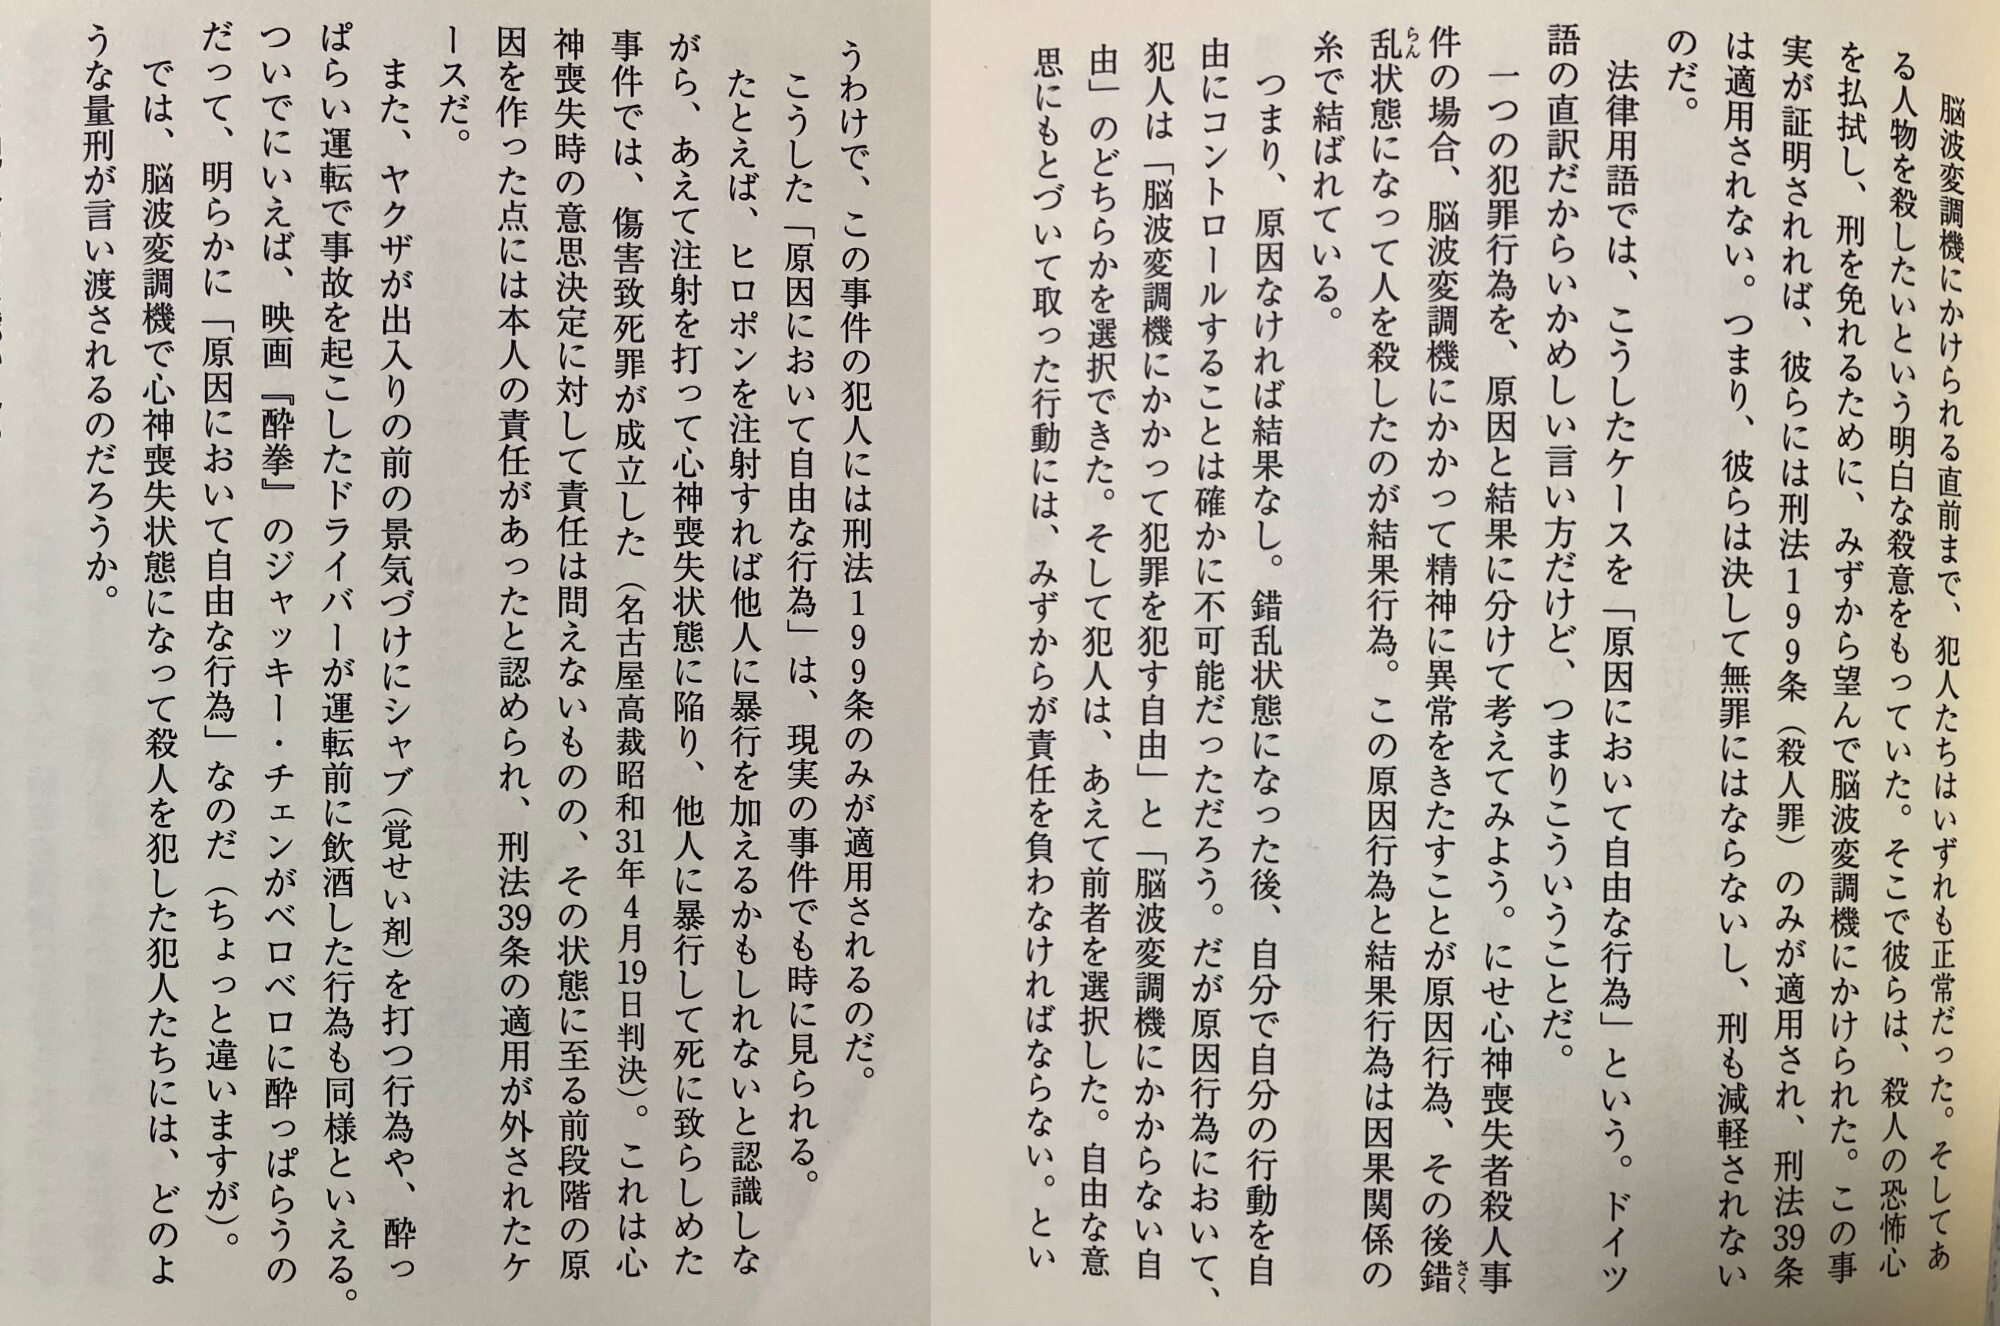 脳波変調機にかけられる直前まで、犯人たちはいずれも正常だった。そしてあ
る人物を殺したいという明白な殺意をもっていた。そこで彼らは、殺人の恐怖心
を払拭し、刑を免れるために、みずから望んで脳波変調機にかけられた。この事
実が証明されれば、彼らには刑法199条（殺人罪）のみが適用され、刑法39条
は適用されない。つまり、彼らは決して無罪にはならないし、刑も減軽されない
のだ。
法律用語では、こうしたケースを「原因において自由な行為」という。ドイツ
語の直訳だからいかめしい言い方だけど、つまりこういうことだ。
一つの犯罪行為を、原因と結果に分けて考えてみよう。にせ心神喪失者殺人事
件の場合、脳波変調機にかかって精神に異常をきたすことが原因行為、その後錯さく
乱らん状態になって人を殺したのが結果行為。この原因行為と結果行為は因果関係の
糸で結ばれている。
つまり、原因なければ結果なし。錯乱状態になった後、自分で自分の行動を自
由にコントロールすることは確かに不可能だっただろう。だが原因行為において、
犯人は「脳波変調機にかかって犯罪を犯す自由」と「脳波変調機にかからない自
由」のどちらかを選択できた。そして犯人は、あえて前者を選択した。自由な意
思にもとづいて取った行動には、みずからが責任を負わなければならない。とい
うわけで、この事件の犯人には刑法199条のみが適用されるのだ。
こうした「原因において自由な行為」は、現実の事件でも時に見られる。
たとえば、ヒロポンを注射すれば他人に暴行を加えるかもしれないと認識しな
がら、あえて注射を打って心神喪失状態に陥り、他人に暴行して死に致らしめた
事件では、傷害致死罪が成立した（名古屋高裁昭和31年4月19日判決）。これは心
神喪失時の意思決定に対して責任は問えないものの、その状態に至る前段階の原
因を作った点には本人の責任があったと認められ、刑法39条の適用が外されたケ
ースだ。
また、ヤクザが出入りの前の景気づけにシャブ（覚せい剤）を打つ行為や、酔っ
ぱらい運転で事故を起こしたドライバーが運転前に飲酒した行為も同様といえる。
ついでにいえば、映画『酔拳』のジャッキー・チェンがベロベロに酔っぱらうの
だって、明らかに「原因において自由な行為」なのだ（ちょっと違いますが）。
では、脳波変調機で心神喪失状態になって殺人を犯した犯人たちには、どのよ
うな量刑が言い渡されるのだろうか。